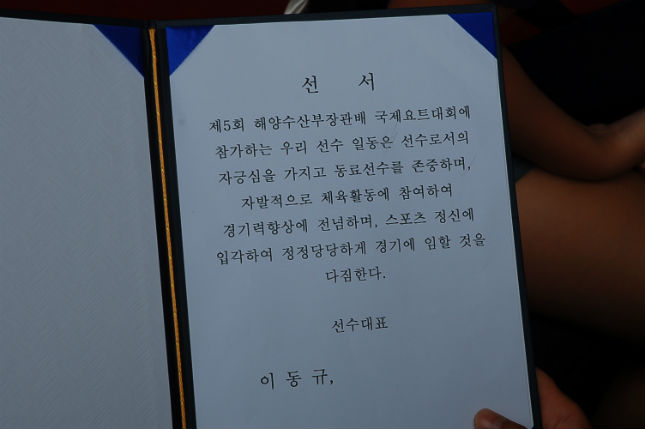 선 서
제5회 해양수산부장관배 국제요트대회에
참가하는 우리 선수 일동은 선수로서의
자긍심을 가지고 동료선수를 존중하며,
자발적으로 체육활동에 참여하여
경기력향상에 전념하며, 스포츠 정신에
입각하여 정정당당하게 경기에 임할 것을
다짐한다.
선수대표
이 동 규,